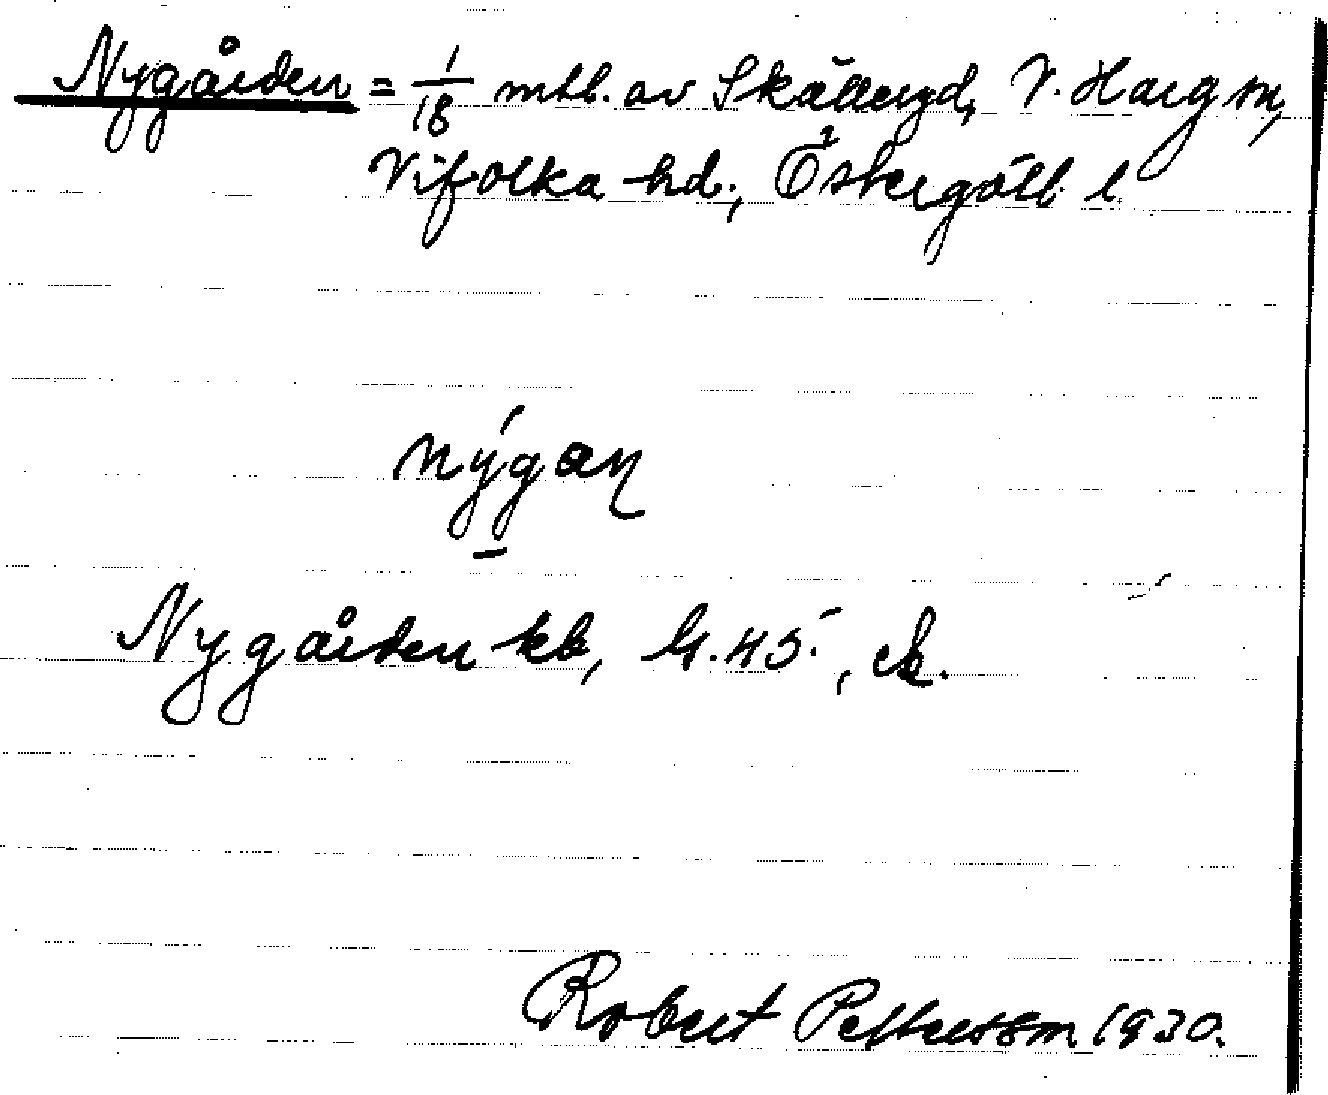 Nygården = 1/18 mtl. av Skälleryd, V. Harg sn,
Vifolka hd., Östergötl. l.
nýgan̥
Nygården kb, G. 45,
Robert Pettersson 1930.